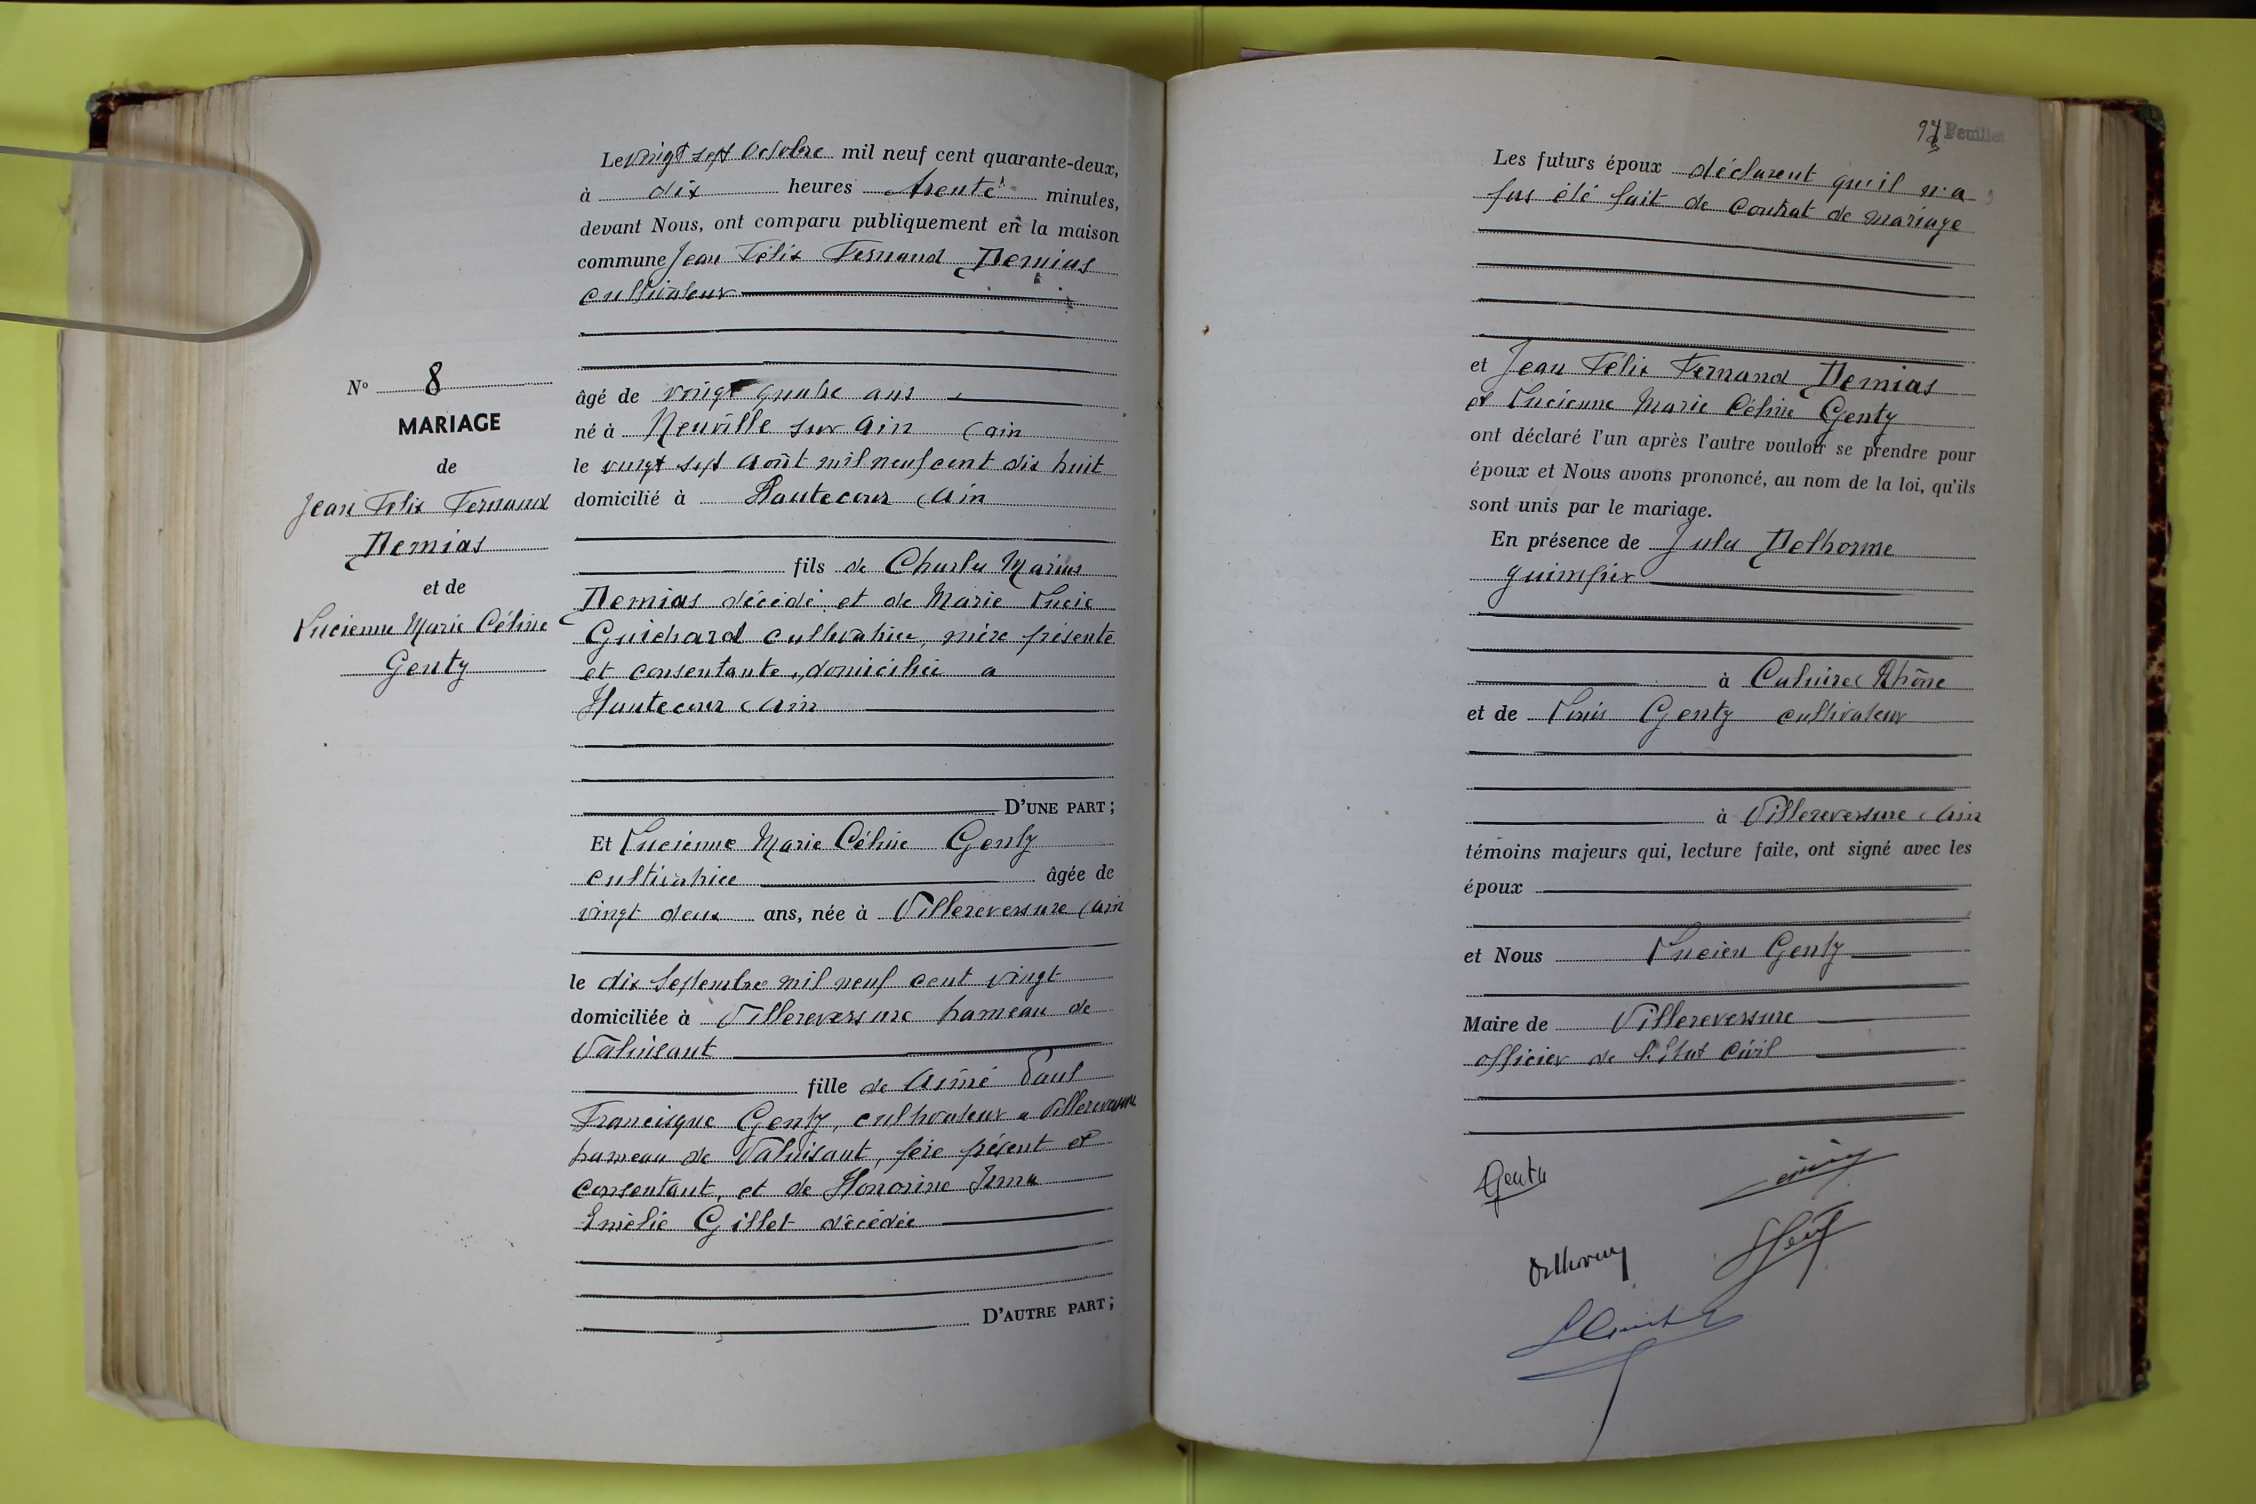 Le vingt sept Octobre mil neuf cent quarante-deux,
à dix heures trente minutes,
devant Nous, ont comparu publiquement en la maison
commune Jean Félix Fernand Demias
cultivateur
N° 8
MARIAGE
de
Jean Félix Fernand
Demias
et de
Lucienne Marie Céline
Genty
âgé de vingt quatre ans
né à Neuville sur Ain (Ain
le vingt sept Août mil neuf cent dix huit
domicilié à Hautecour (Ain
fils de Charles Marius
Demias décédé et de Marie Lucie
Guichard cultivatrice, mère présente
et consentante, domiciliée a
Hautecour (Ain
D'UNE PART;
Et Lucienne Marie Céline Genty
cultivatrice âgée de
vingt deux ans, née à Villereversure (Ain
le dix Septembre mil neuf cent vingt
domiciliée à Villereversure hameau de
Valuisant
fille de Aimé Paul
Francisque Genty, cultivateur a Villereversure
hameau de Valuisant, père présent et
consentant, et de Honorine Irma
Emélie Gillet décédée
D'AUTRE PART;
97 Feuillet
Les futurs époux déclarent qu'il n'a
pas été fait de contrat de mariage
et Jean Félix Fernand Demias
et Lucienne Marie Céline Genty
ont déclaré l'un après l'autre vouloir se prendre pour
époux et Nous avons prononcé, au nom de la loi, qu'ils
sont unis par le mariage.
En présence de Jules Delhorme
guimpier
à Caluire (Rhône
et de Louis Genty cultivateur
à Villereversure (Ain
témoins majeurs qui, lecture faite, ont signé avec les
époux
et Nous Lucien Genty
Maire de Villereversure
officier de l'Etat Civil
Genty
Delhorme